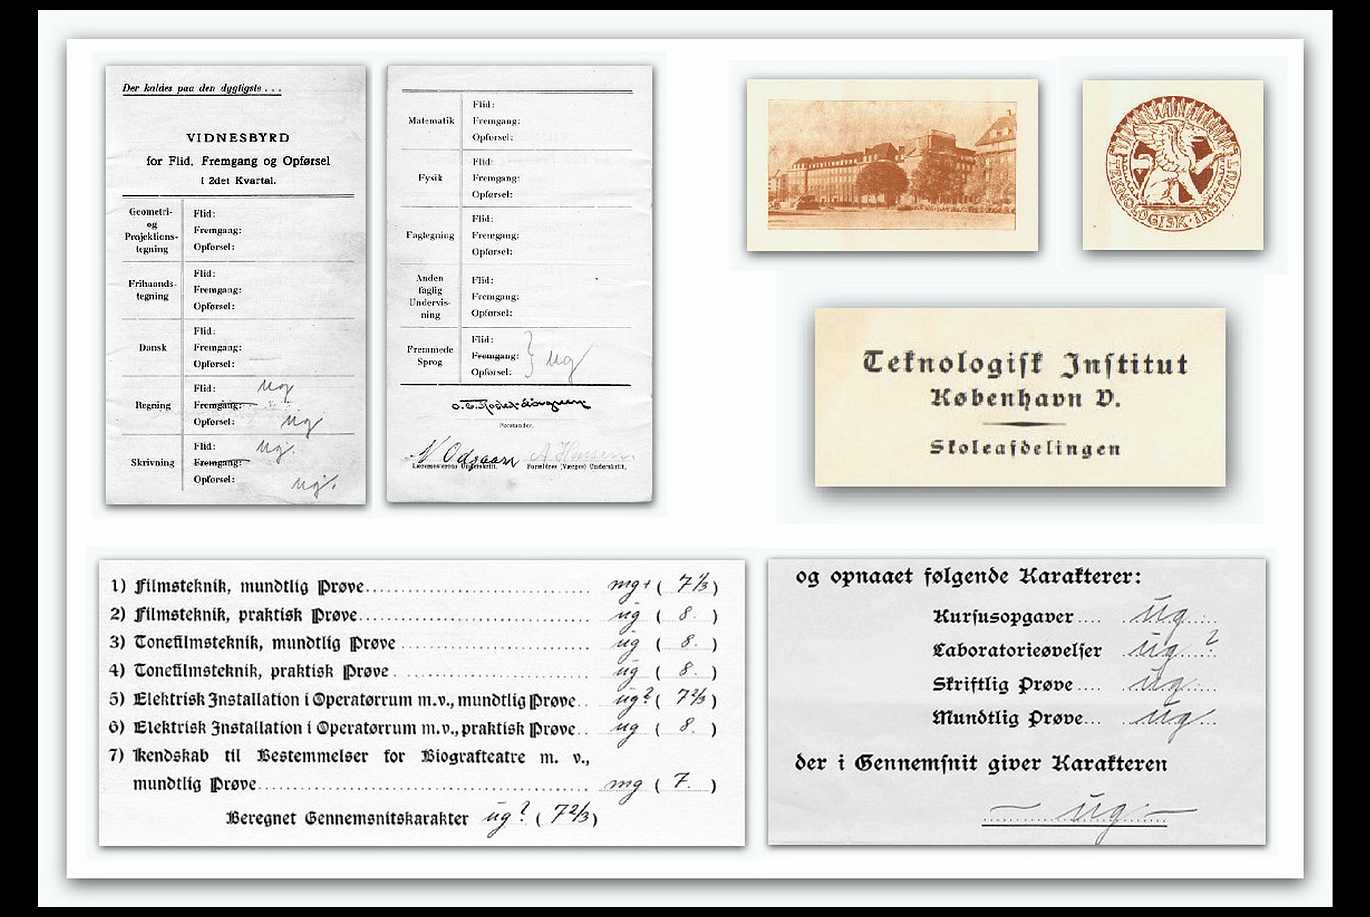 Der kaldes paa den dygtigste . . .
VIDNESBYRD
for Flid, Fremgang og Opførsel
i 2det Kvartal.
Geometri- og Projektions- tegning
Flid:
Fremgang:
Opførsel:
Frihaands- tegning
Flid:
Fremgang:
Opførsel:
Dansk
Flid:
Fremgang:
Opførsel:
Regning
Flid: ug
Fremgang:
Opførsel: ug
Skrivning
Flid: ug.
Fremgang:
Opførsel: ug.
Matematik
Flid:
Fremgang:
Opførsel:
Fysik
Flid:
Fremgang:
Opførsel:
Fagtegning
Flid:
Fremgang:
Opførsel:
Anden faglig Undervis- ning
Flid:
Fremgang:
Opførsel:
Fremmede Sprog
Flid:
Fremgang: } ug
Opførsel:
Forstander.
A Hansen
Læremesterens Underskrift. Forældres (Værges) Underskrift.
TEKNOLOGISK · INSTITUT
Teknologisk Institut
København V.
Skoleafdelingen
1) Filmsteknik, mundtlig Prøve mg+ ( 7 1/3 )
2) Filmsteknik, praktisk Prøve ug ( 8. )
3) Tonefilmsteknik, mundtlig Prøve ug ( 8. )
4) Tonefilmsteknik, praktisk Prøve ug ( 8. )
5) Elektrisk Installation i Operatørrum m.v., mundtlig Prøve.. ug? ( 7 2/3 )
6) Elektrisk Installation i Operatørrum m.v., praktisk Prøve.. ug ( 8. )
7) Kendskab til Bestemmelser for Biografteatre m. v.,
mundtlig Prøve mg ( 7. )
Beregnet Gennemsnitskarakter ug? ( 7 2/3 )
og opnaaet følgende Karakterer:
Kursusopgaver .... ug
Laboratorieøvelser ug?
Skriftlig Prøve .... ug
Mundtlig Prøve... ug
der i Gennemsnit giver Karakteren
— ug. —